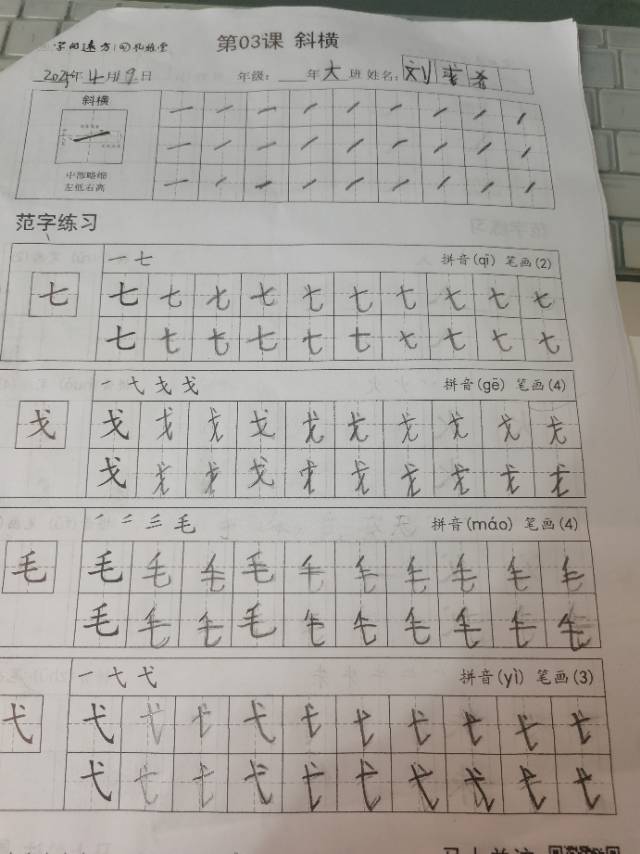 第03课 斜横
4月19日 年级: 年 大 班 姓名: 刘
斜横
中部略细
左低右高
范字练习
一 七 拼音(qī) 笔画(2)
七 七 七 七 七 七 七 七 七 七 七
七 七 七 七 七 七 七 七 七 七
一 弋 戈 戈 拼音(gē) 笔画(4)
戈 戈 戈 戈 戈 戈 戈 戈 戈 戈 戈
戈 戈 戈 戈 戈 戈 戈 戈 戈 戈
一 二 三 毛 拼音(máo) 笔画(4)
毛 毛 毛 毛 毛 毛 毛 毛 毛 毛 毛
毛 毛 毛 毛 毛 毛 毛 毛 毛 毛
一 弋 弋 拼音(yì) 笔画(3)
弋 弋 弋 弋 弋 弋 弋 弋 弋 弋 弋
弋 弋 弋 弋 弋 弋 弋 弋 弋 弋